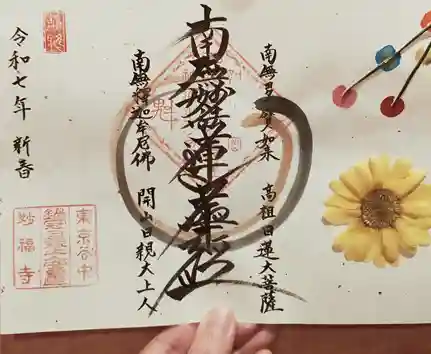 南無 如来 高祖日蓮大菩薩
南無妙法蓮華経
南無釋迦牟尼佛 開山日親大上人
令和七年 新春
東京谷中
妙福寺